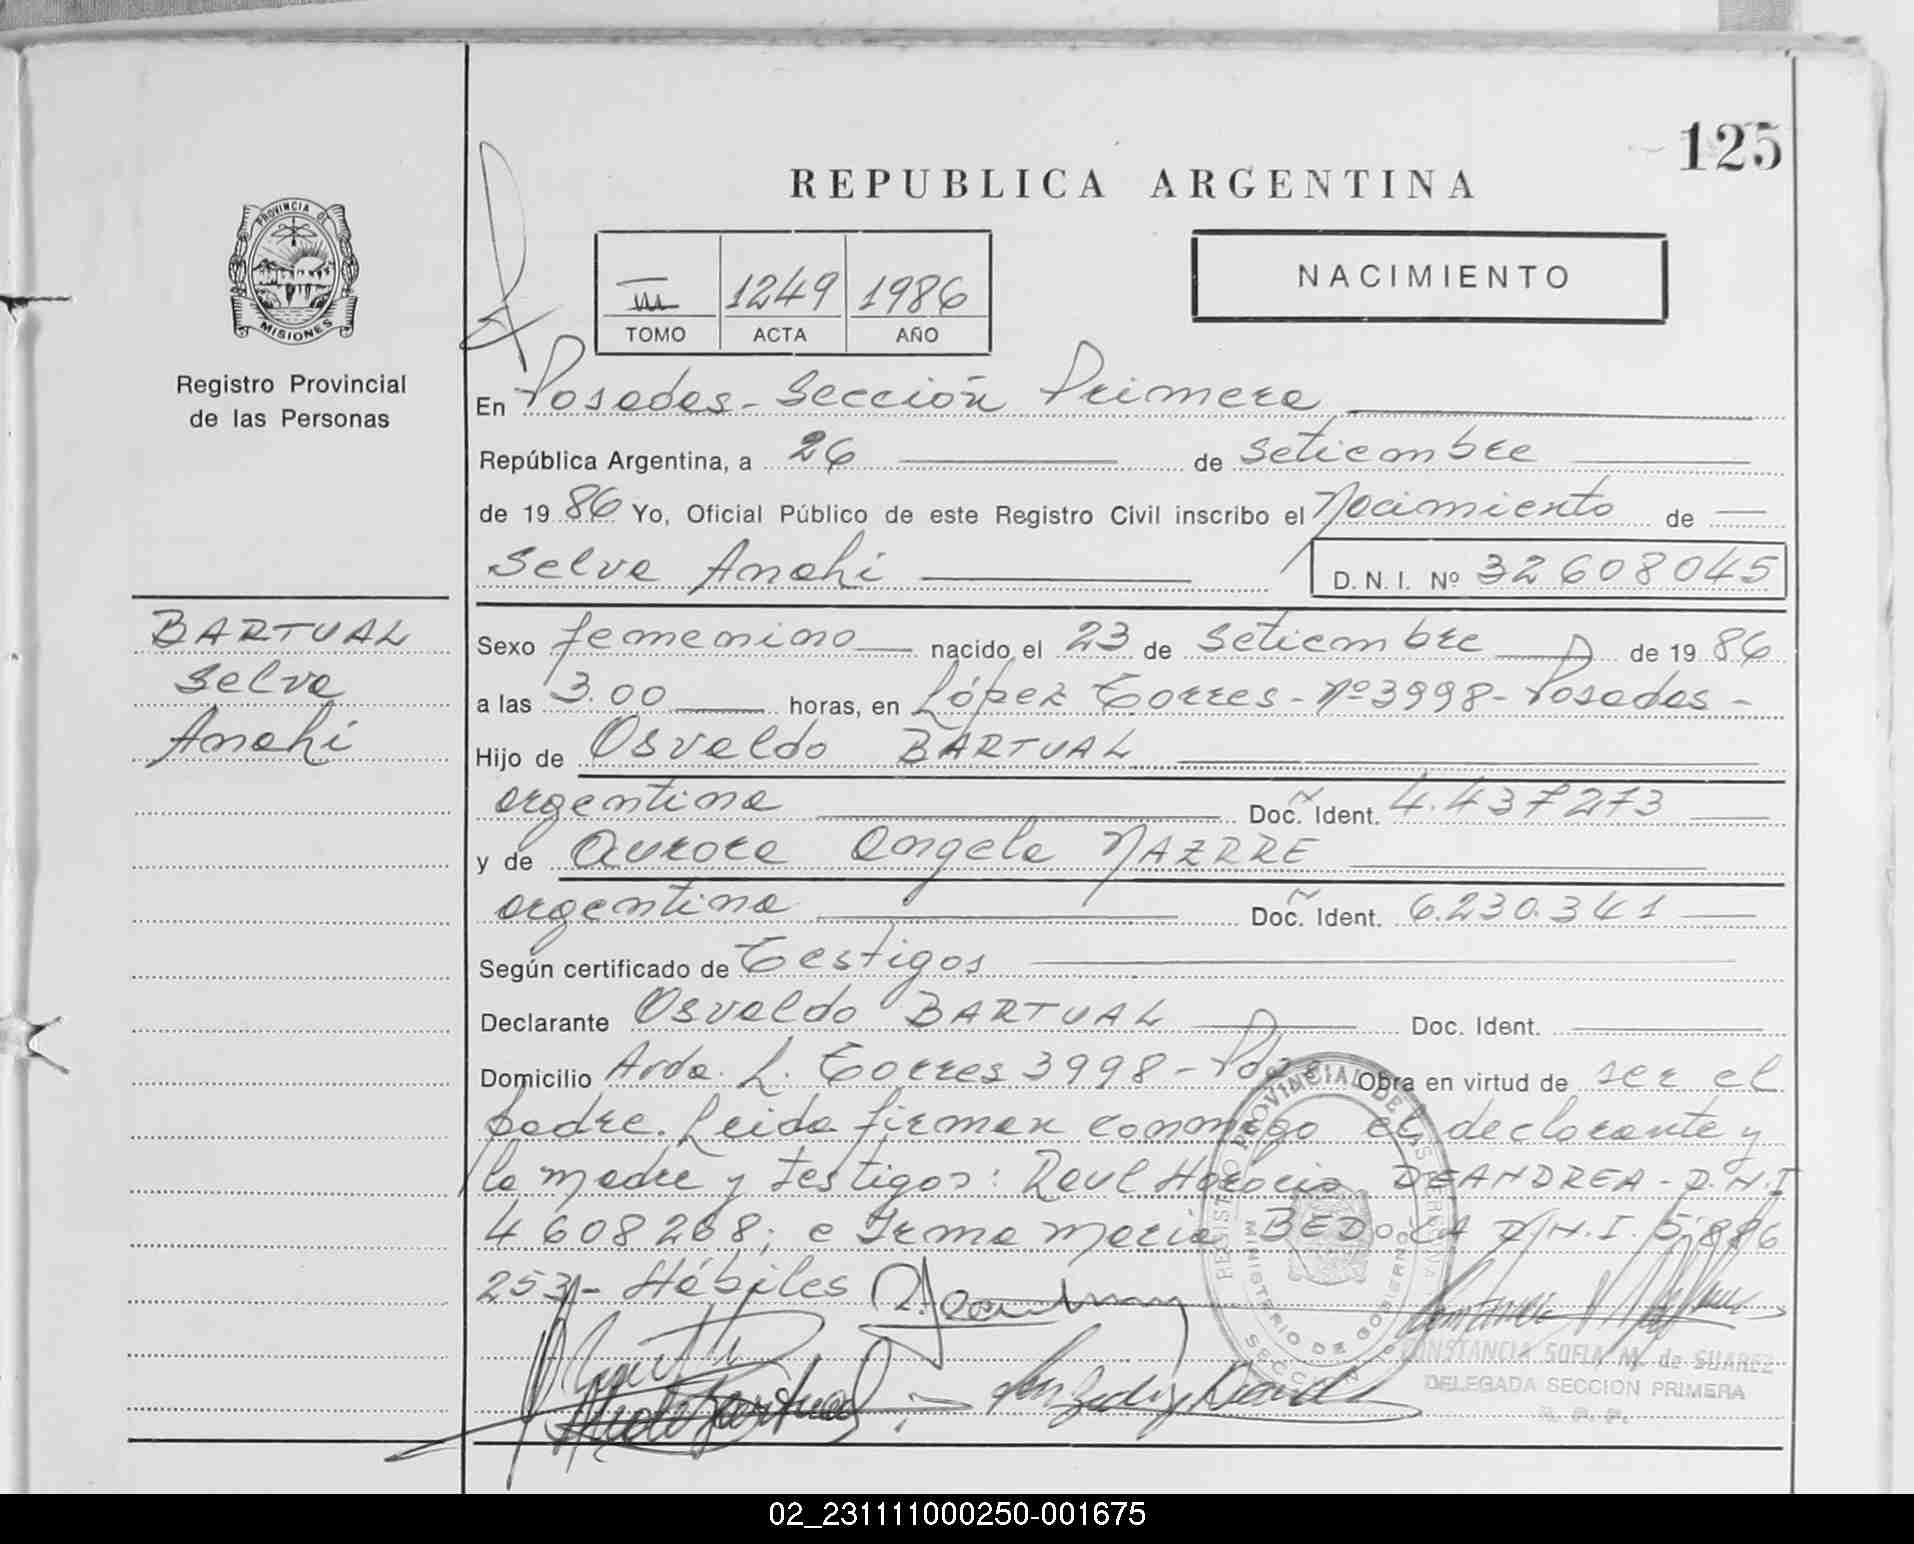 125
REPUBLICA ARGENTINA
PROVINCIA DE
MISIONES
Registro Provincial
de las Personas
III 1249 1986
TOMO ACTA AÑO
NACIMIENTO
En Posadas - Sección Primera
República Argentina, a 26 de Setiembre
de 19 86 Yo, Oficial Público de este Registro Civil inscribo el Nacimiento de
Selva Anahi D. N. I. Nº 32608045
BARTUAL
Selva
Anahi
Sexo femenino nacido el 23 de Setiembre de 19 86
a las 3.00 horas, en López Torres - Nº 3998 - Posadas -
Hijo de Osvaldo BARTUAL
argentina Doc. Ident. 4.437273
y de Aurora Angela NAZRRE
argentina Doc. Ident. 6.230.341
Según certificado de Testigos
Declarante Osvaldo BARTUAL Doc. Ident.
Domicilio Avda. L. Torres 3998 - Pdas Obra en virtud de ser el
padre. Leida firman conmigo el declarante y
la madre y testigos: Raul Horacio DEANDREA - D.N.I
4608268; e Irma Maria BEDOLA D.N.I. 5.886
253 - Hábiles
REGISTRO PROVINCIAL DE LAS PERSONAS
MINISTERIO DE GOBIERNO
SECCION
CONSTANCIA SOFIA M. de SUAREZ
DELEGADA SECCION PRIMERA
R. P. P.
02_231111000250-001675